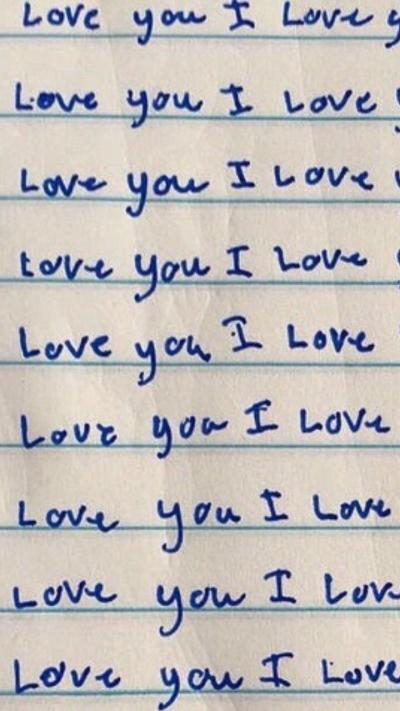 Love you I Love y
Love you I Love
Love you I Love
Love you I Love
Love you I Love
Love you I Love
Love you I Love
Love you I Love
Love you I Love